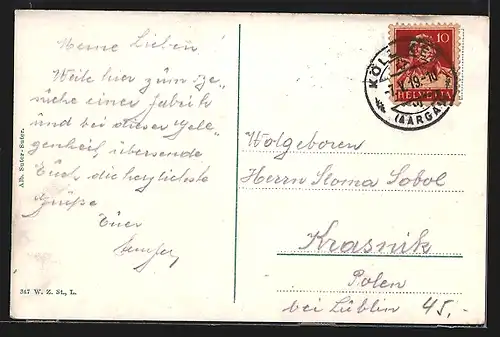 Meine Lieben
Weile hier zum Be-
suche einer Fabrik
und bei dieser Gele-
genheit übersende
Euch die herzlichste
Grüße
Euer
Alb. Suter-Suter.
347 W. Z. St., L.
10
HELVETIA
KÖLL
(AARGAU)
Wolgeboren
Herrn Sloma Sobol
Krasnik
Polen
bei Lüblin 45.-